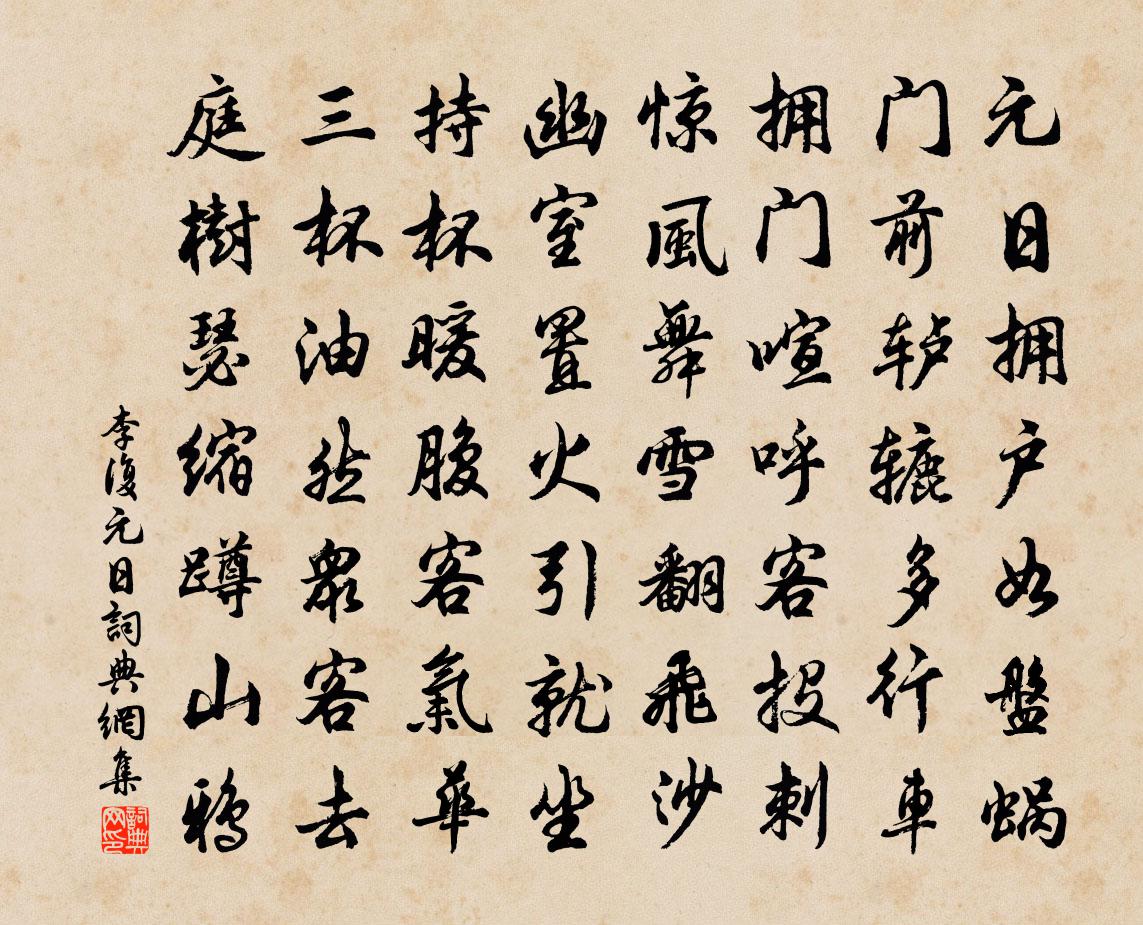 元日拥户如盤蜗
门前轳辘多行車
拥门喧呼客投刺
惊風舞雪翻飛沙
幽室置火引就坐
持杯暖腹客氣華
三杯油然眾客去
庭樹瑟縮蹲山鴉
李復元日詞典網集
詞典网印